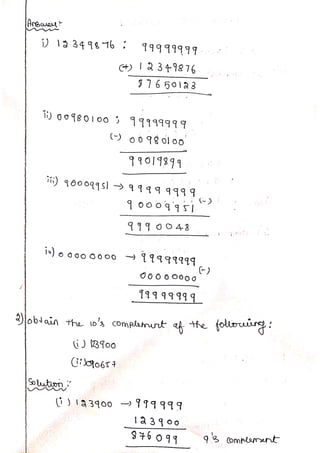 Answer:-
i) 12349876 : 99999999
(+) 12349876
87650123
ii) 00980100 : 99999999
(-) 00980100
99019899
iii) 90009951 → 9999 9999
90009951 (-)
9990048
iv) 00000000 → 99999999
00000000 (-)
99999999
2) obtain the 10's complement of the following:
(i) 123900
(ii) 090657
Solution:-
(i) 123900 → 999999
123900
876099 9's complement